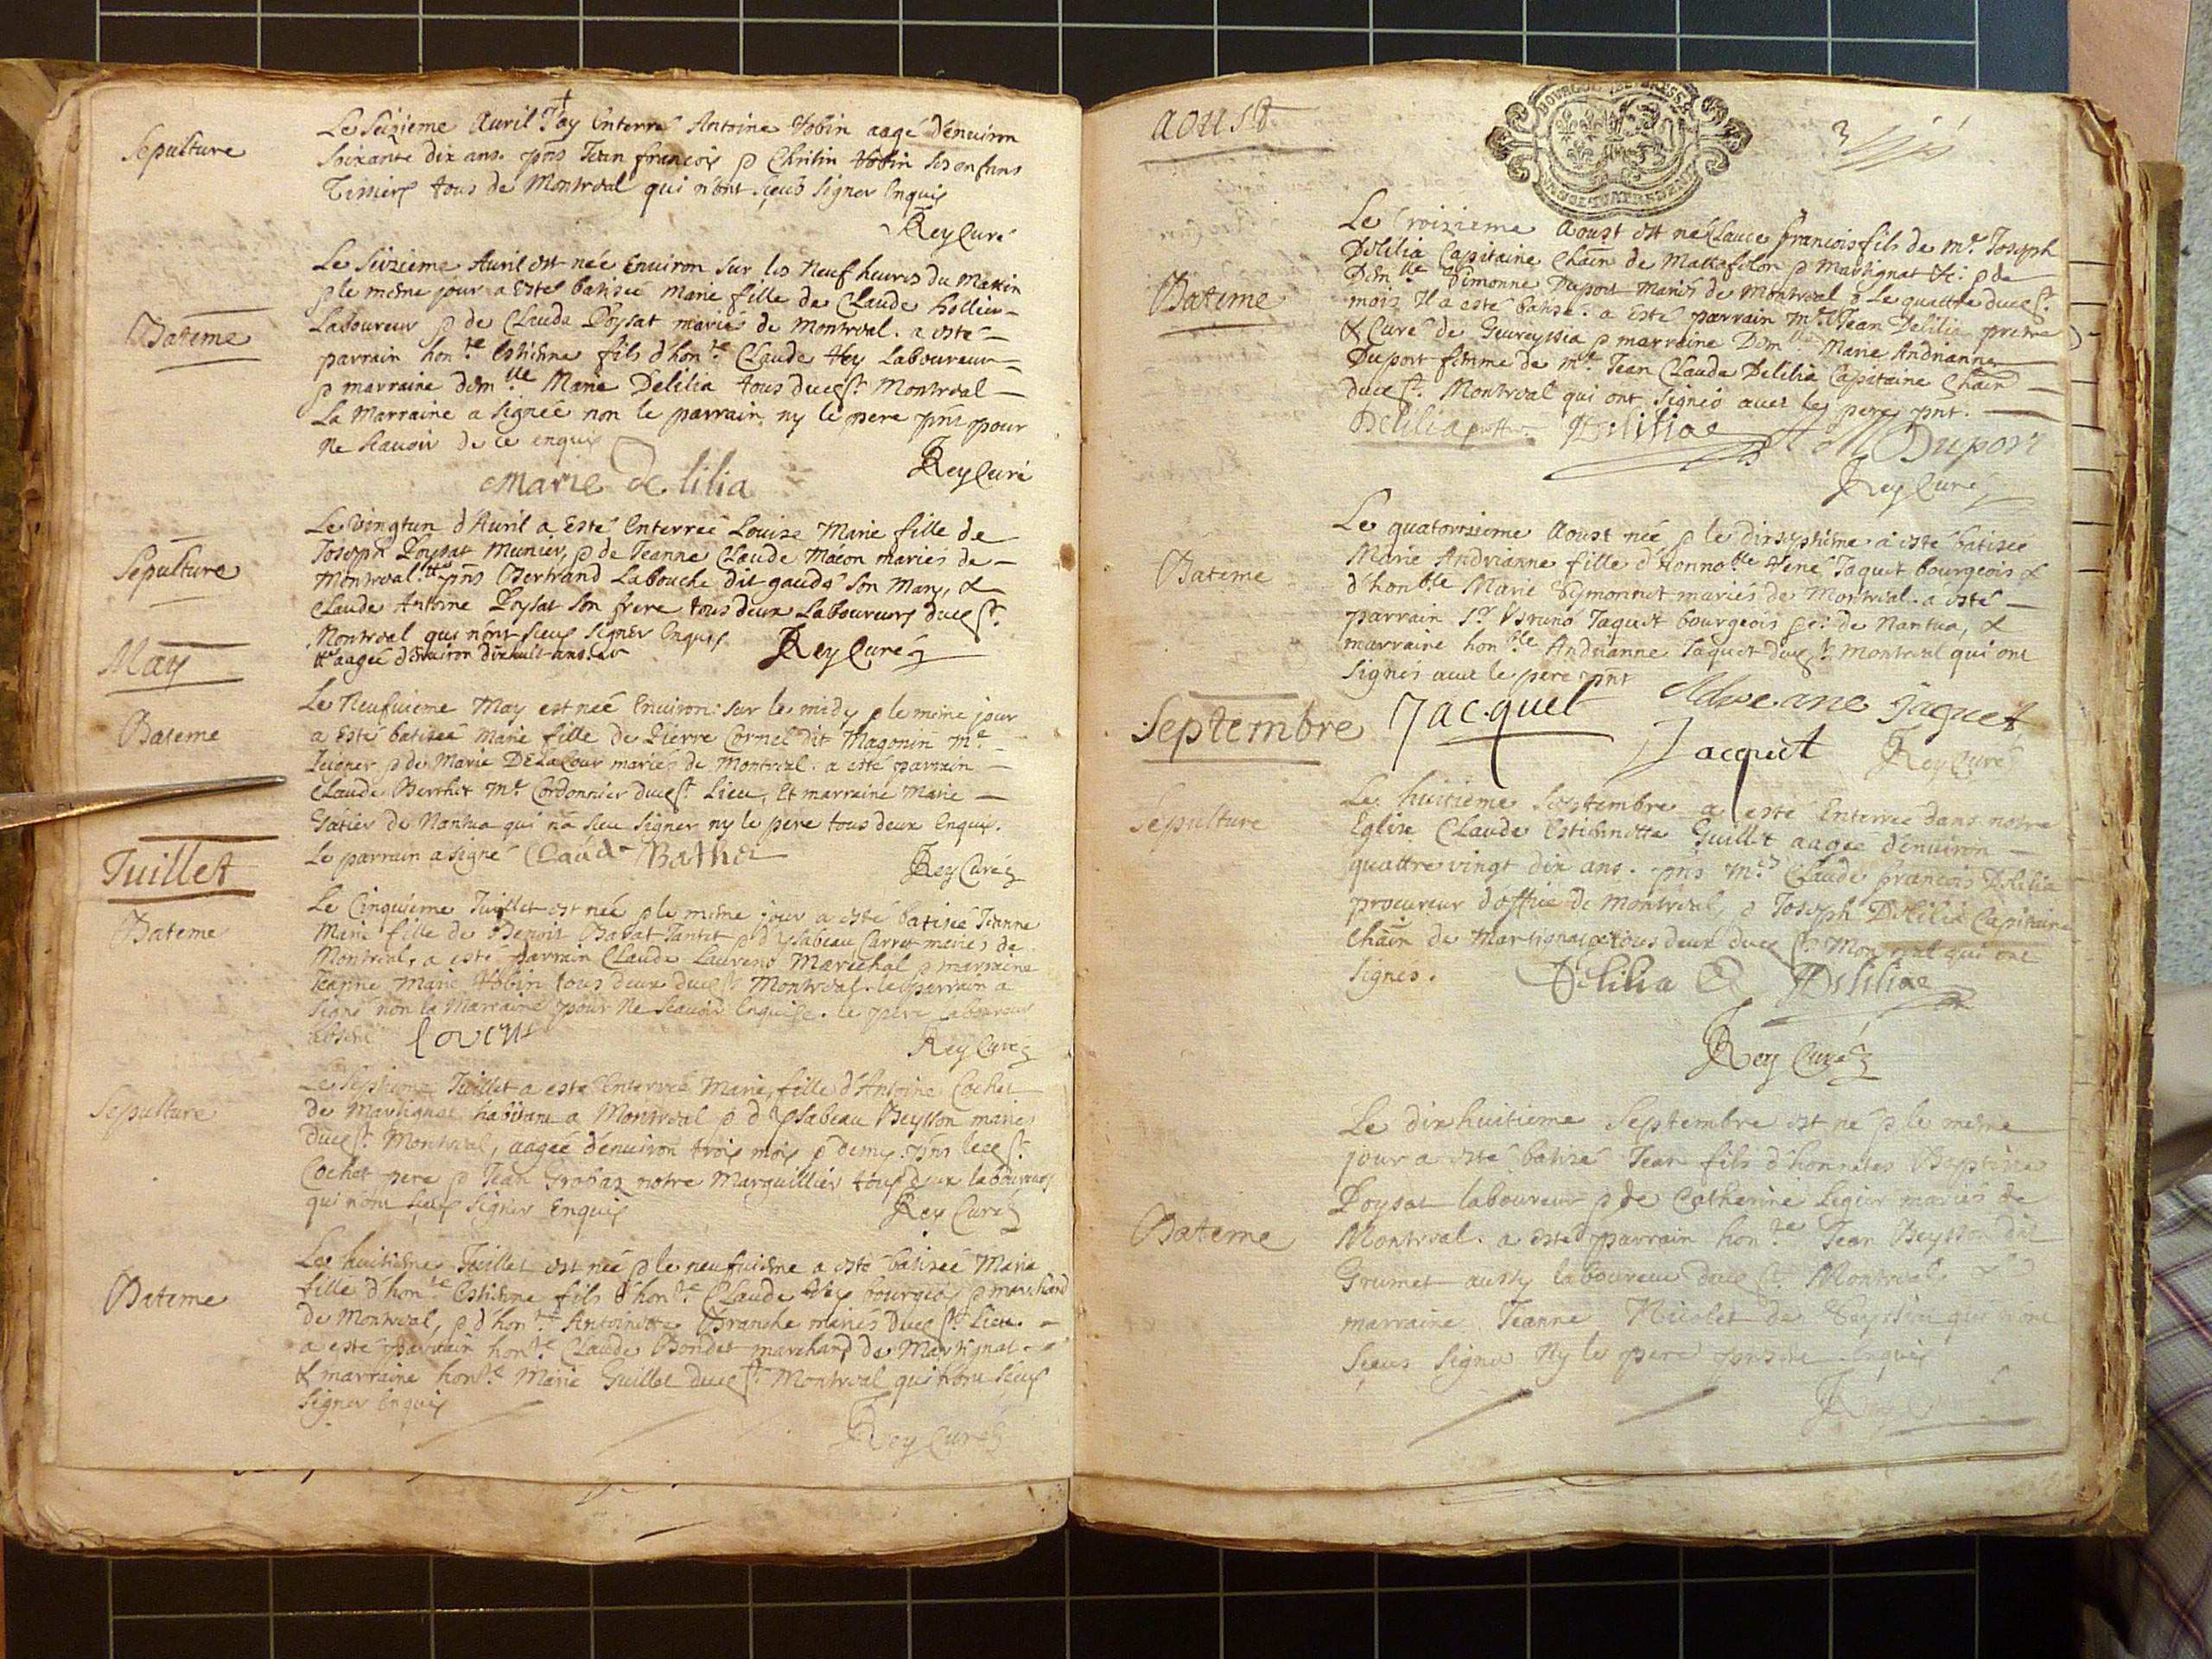 Sepulture
Le Seizieme Auril J'ay Enterré Antoine Vobin aagé d'enuiron
soixante dix ans. pñs Jean francois & Christin Vobin ses enfans
Tissiers tous de Montreal qui n'ont sçeus signer Enquis
Rey Curé
Bateme
Le Seizieme Auril est née Enuiron sur les Neuf heures du Matin
& le mesme jour a Esté batisée Marie fille de Claude hollier
Laboureur & de Clauda Poysat mariés de Montreal. a esté
parrain hon.te Estienne fils d'hon.te Claude Rey Laboureur
& marraine dem.lle Marie Delilia tous duest. Montreal
La Marraine a signée non le parrain, ny le pere pñt pour
ne scauoir de ce enquis
Marie de lilia
Rey Curé
Sepulture
Le vingtun d'Auril a Esté Enterreé Louise Marie fille de
Joseph Poysat Munier, & de Jeanne Claude Macon mariés de
Montreal. pñs Bertrand Labouche dit gauda son Mary, &
Claude Antoine Poysat son frere tous deux Laboureurs duest.
Montreal qui n'ont sceus signer Enquis
aagée d'Enuiron dixhuit ans.
Rey Curé
May
Bateme
Le Neufuieme May est née Enuiron sur le midy & le mesme jour
a Esté batisée Marie fille de Pierre Cornel dit Magonin M.e
& de Marie DelaCour mariés de Montreal. a esté parrain
Claude Berthet M.e Cordonnier duest. Lieu, Et marraine Marie
Gatier de Nantua qui n'a sceu signer ny le pere tous deux Enquis.
Le parrain a signé Claude Bathet
Rey Curé
Juillet
Bateme
Le Cinquieme Juillet est née & le mesme jour a esté batisée Jeanne
Marie fille de Benoit Tantet & d'ysabeau Carret mariés de
Montreal, a esté parrain Claude Laurens Marechal & marraine
Jeanne Marie Vobin tous deux duest. Montreal. le parrain a
signé non la Marraine pour ne sceauoir Enquise. le pere laboureur
absent
Rey Curé
Sepulture
Le Septieme Juillet a esté Enterrée Marie, fille d'Antoine Cochet
de Martignat habitant a Montreal & d'ysabeau Beysson mariés
duest. Montreal, aagée d'enuiron trois mois & demy. pñs
Cochet pere & Jean Grobas notre Marguillier tous deux laboureurs
qui n'ont sceus signer Enquis
Rey Curé
Bateme
Le huitieme Juillet est née & le neufuieme a esté batisée Marie
fille d'hon.te Estienne fils d'hon.te Claude Rey bourgeois & marchand
de Montreal, & d'hon.te Antoinette Branche mariés duest. Lieu.
a esté parrain hon.te Claude Bondet marchand de Martignat
& marraine hon.te Marie Guillet duest. Montreal qui n'ont sceus
signer Enquis
Rey Curé
aoust
Bateme
Le Troizieme Aoust est né Claude francois fils de M.e Joseph
Delilia Capitaine Chãin de Mattafelon & Martignat & de
Dem.lle Simonne Duport Mariés de Montreal & Le quattre duest.
mois Il a esté batisé. a esté parrain M.e Jean Delilia pretre
& Curé de Geureyssia & marraine Dem.lle Marie Andrianne
Duport femme de M.e Jean Claude Delilia Capitaine Chãin
duest. Montreal qui ont signés auec le pere pñt.
Delilia Delilia M Duport
Rey Curé
Bateme
Le quatorzieme Aoust née & le dixseptieme a esté batisée
Marie Andrianne fille d'honno.ble René Jaquet bourgeois &
d'hon.ble Marie mariés de Montreal. a esté
parrain S.r Bruno Jaquet bourgeois de Nantua, &
marraine hon.ble Andrianne Jaquet duest. Montreal qui ont
signés auec le pere pñt
Jacquet Adreane Jaquet
Jacquet Rey Curé
Septembre
Sepulture
Le huitieme Septembre a esté Enterrée dans notre
Eglise Claude Estiennette Guillet aagée d'enuiron
quattre vingt dix ans. pñs M.es Claude francois Delilia
procureur d'office de Montreal, & Joseph Delilia Capitaine
Chãin de Martignat & tous deux duest. Montreal qui ont
signés. Delilia Delilia
Rey Curé
Bateme
Le dixhuitieme Septembre est né & le mesme
jour a esté batisé Jean fils d'honnetes Baptiste
Poysat laboureur & de Catherine Legier mariés de
Montreal. a esté parrain hon.te Jean Beysson dit
Grumet aussy laboureur duest. Montreal &
marraine Jeanne Nicolet de qui n'ont
sceus signer Ny le pere Enquis
Rey Curé